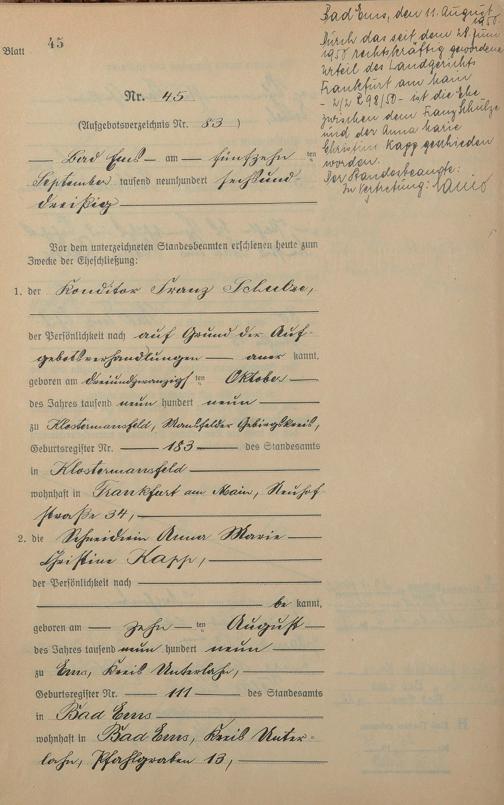 Bad Ems, den 11. August
1950.
Durch das seit dem 28. Juni
1950 rechtskräftig gewordene
Urteil des Landgerichts
Frankfurt am Main
- 2/2 R 98/50 - ist die Ehe
zwischen dem Franz Schulze
und der Anna Marie
Christine Kapp geschieden
worden.
Der Standesbeamte:
In Vertretung:
Blatt 45
Nr. 45
(Aufgebotsverzeichnis Nr. 83)
Bad Ems am fünfzehn ten
September tausend neunhundert sechsund-
dreißig
Vor dem unterzeichneten Standesbeamten erschienen heute zum
Zwecke der Eheschließung:
1. der Konditor Franz Schulze,
der Persönlichkeit nach auf Grund der Auf-
gebotsverhandlungen aner kannt,
geboren am dreiundzwanzigs ten Oktober
des Jahres tausend neun hundert neun
zu Klostermansfeld, Mansfelder Gebirgskreis,
Geburtsregister Nr. 183 des Standesamts
in Klostermansfeld
wohnhaft in Frankfurt am Main, Neuhof-
straße 34,
2. die Schneiderin Anna Marie
Christine Kapp,
der Persönlichkeit nach
be kannt,
geboren am zehn ten August
des Jahres tausend neun hundert neun
zu Ems, Kreis Unterlahn,
Geburtsregister Nr. 111 des Standesamts
in Bad Ems
wohnhaft in Bad Ems, Kreis Unter-
lahn, Pfahlgraben 13,